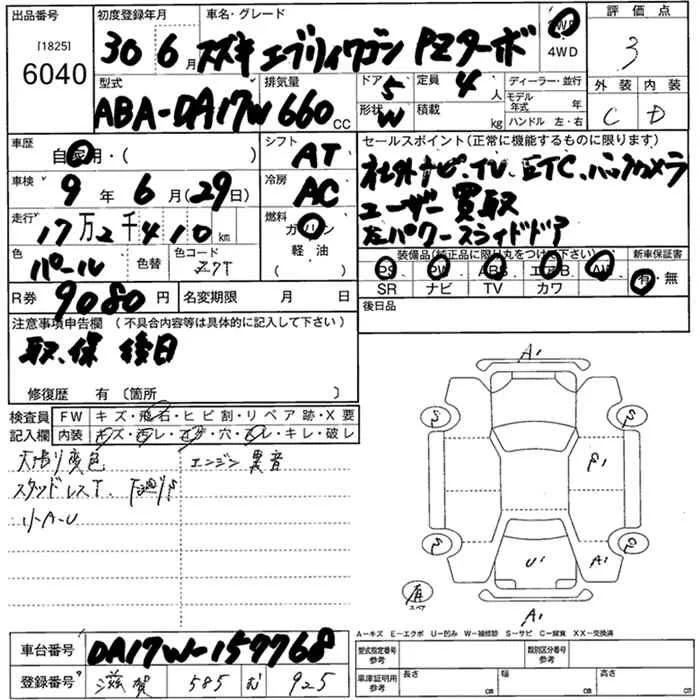 出品番号 初度登録年月 車名・グレード 2WD 評価点
[1825] 6040 30 6月 スズキ エブリィワゴン PZターボ 4WD 3
型式 排気量 ドア 5 定員 4人 ディーラー・並行 外装 内装
ABA-DA17W 660cc 形状 W 積載 kg モデル年式 年 C D
ハンドル 左・右
車歴 自家用・( ) シフト AT セールスポイント(正常に機能するものに限ります)
車検 9年 6月(29日) 冷房 AC 社外ナビ、TV、ETC、バックカメラ
ユーザー買取
走行 17万2千410km 燃料 ガソリン 軽油 ( ) 左パワースライドドア
色 パール 色替 色コード Z7T 装備品(純正品に限り丸をつけて下さい) 新車保証書
PS PW ABS エアB AW 有・無
R券 9080円 名変期限 月 日 SR ナビ TV カワ
後日品
注意事項申告欄 (不具合内容等は具体的に記入して下さい)
取、保 後日
修復歴 有〔箇所 〕
検査員 FW キズ・飛石・ヒビ割・リペア跡・X要
記入欄 内装 キズ・・穴・・キレ・破レ
天張り変色 エンジン異音
スタッドレスT、下廻りS
小A-U
A1
S S
S S
U1 A1
有 スペア
A1
A-キズ E-エクボ U-凹み W-補修跡 S-サビ C-腐食 XX-交換済
車台番号 DA17W-157768 型式指定番号 参考 類別区分番号 参考
登録番号 滋賀 585 む 925 車庫証明用 参考 長さ cm 幅 cm 高さ cm